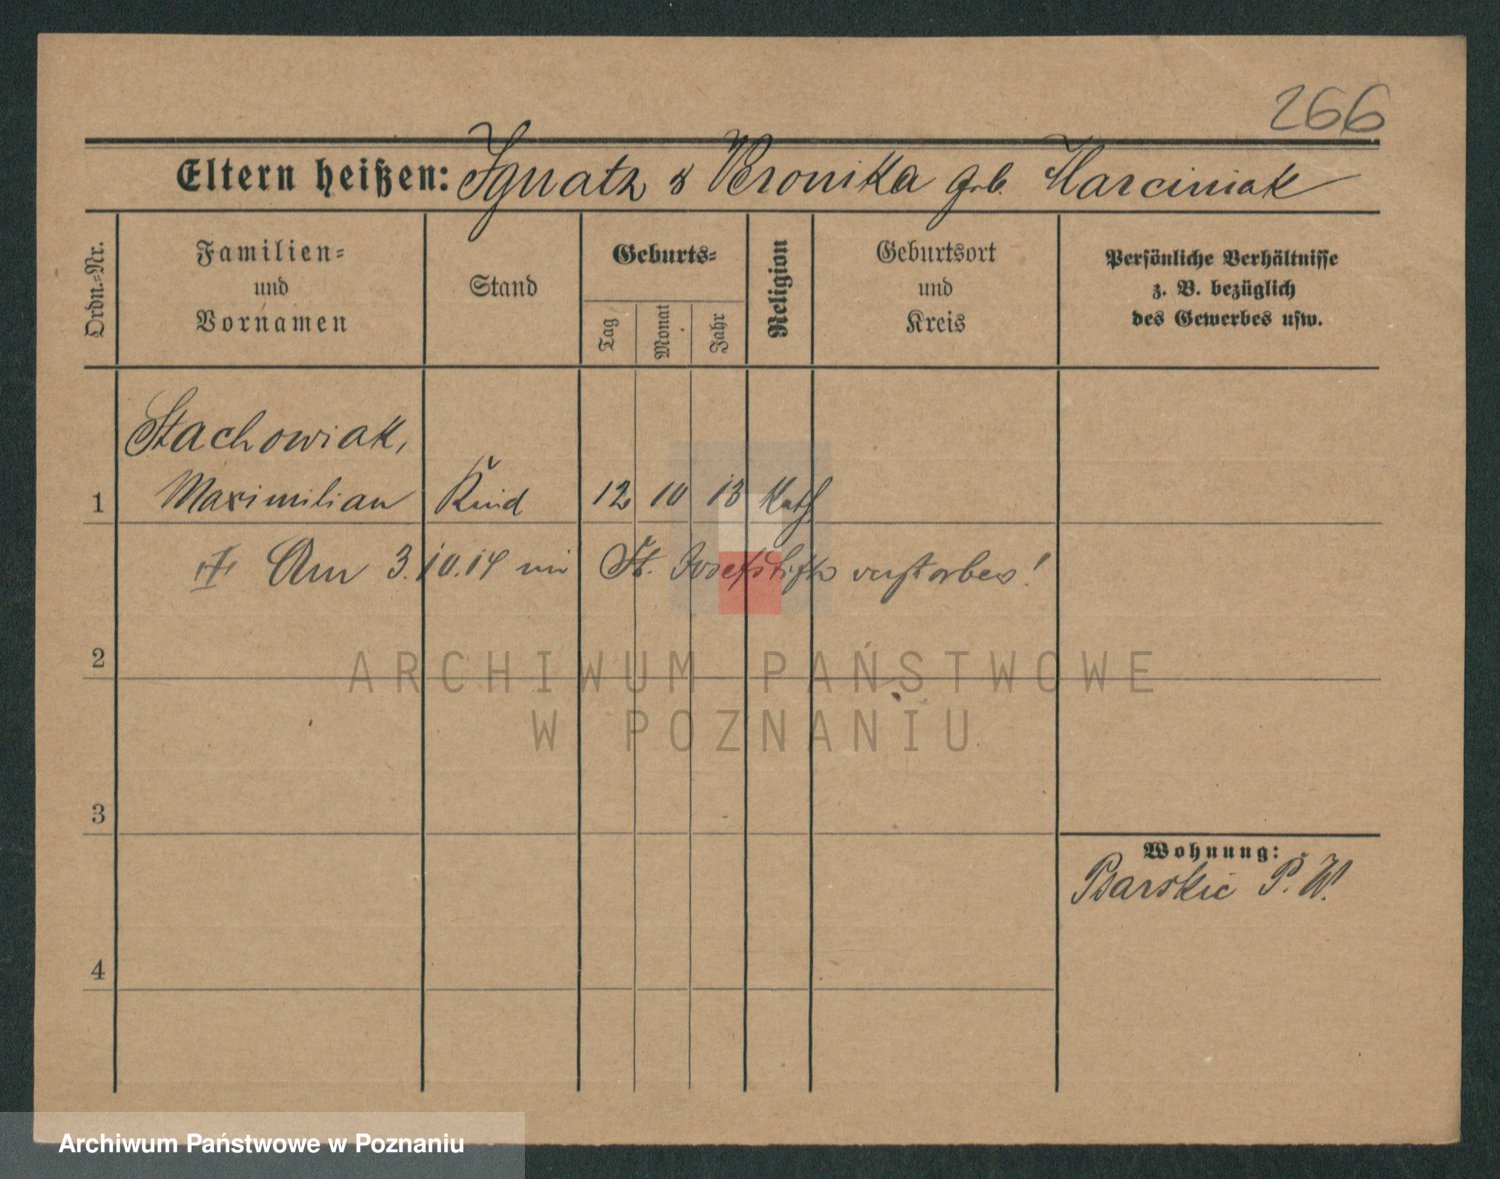 266
Eltern heißen: Ignatz & Veronika geb. Marciniak
Ordn.-Nr.
Familien-
und
Vornamen
Stand
Geburts-
Tag
Monat
Jahr
Religion
Geburtsort
und
Kreis
Persönliche Verhältnisse
z. B. bezüglich
des Gewerbes usw.
Stachowiak,
1 Maximilian Kind 12 10 13 Kath
Am 3.10.14 im St. Josefstift verstorben!
2
ARCHIWUM PAŃSTWOWE
W POZNANIU
3
Wohnung:
Psarskie P. W.
4
Archiwum Państwowe w Poznaniu